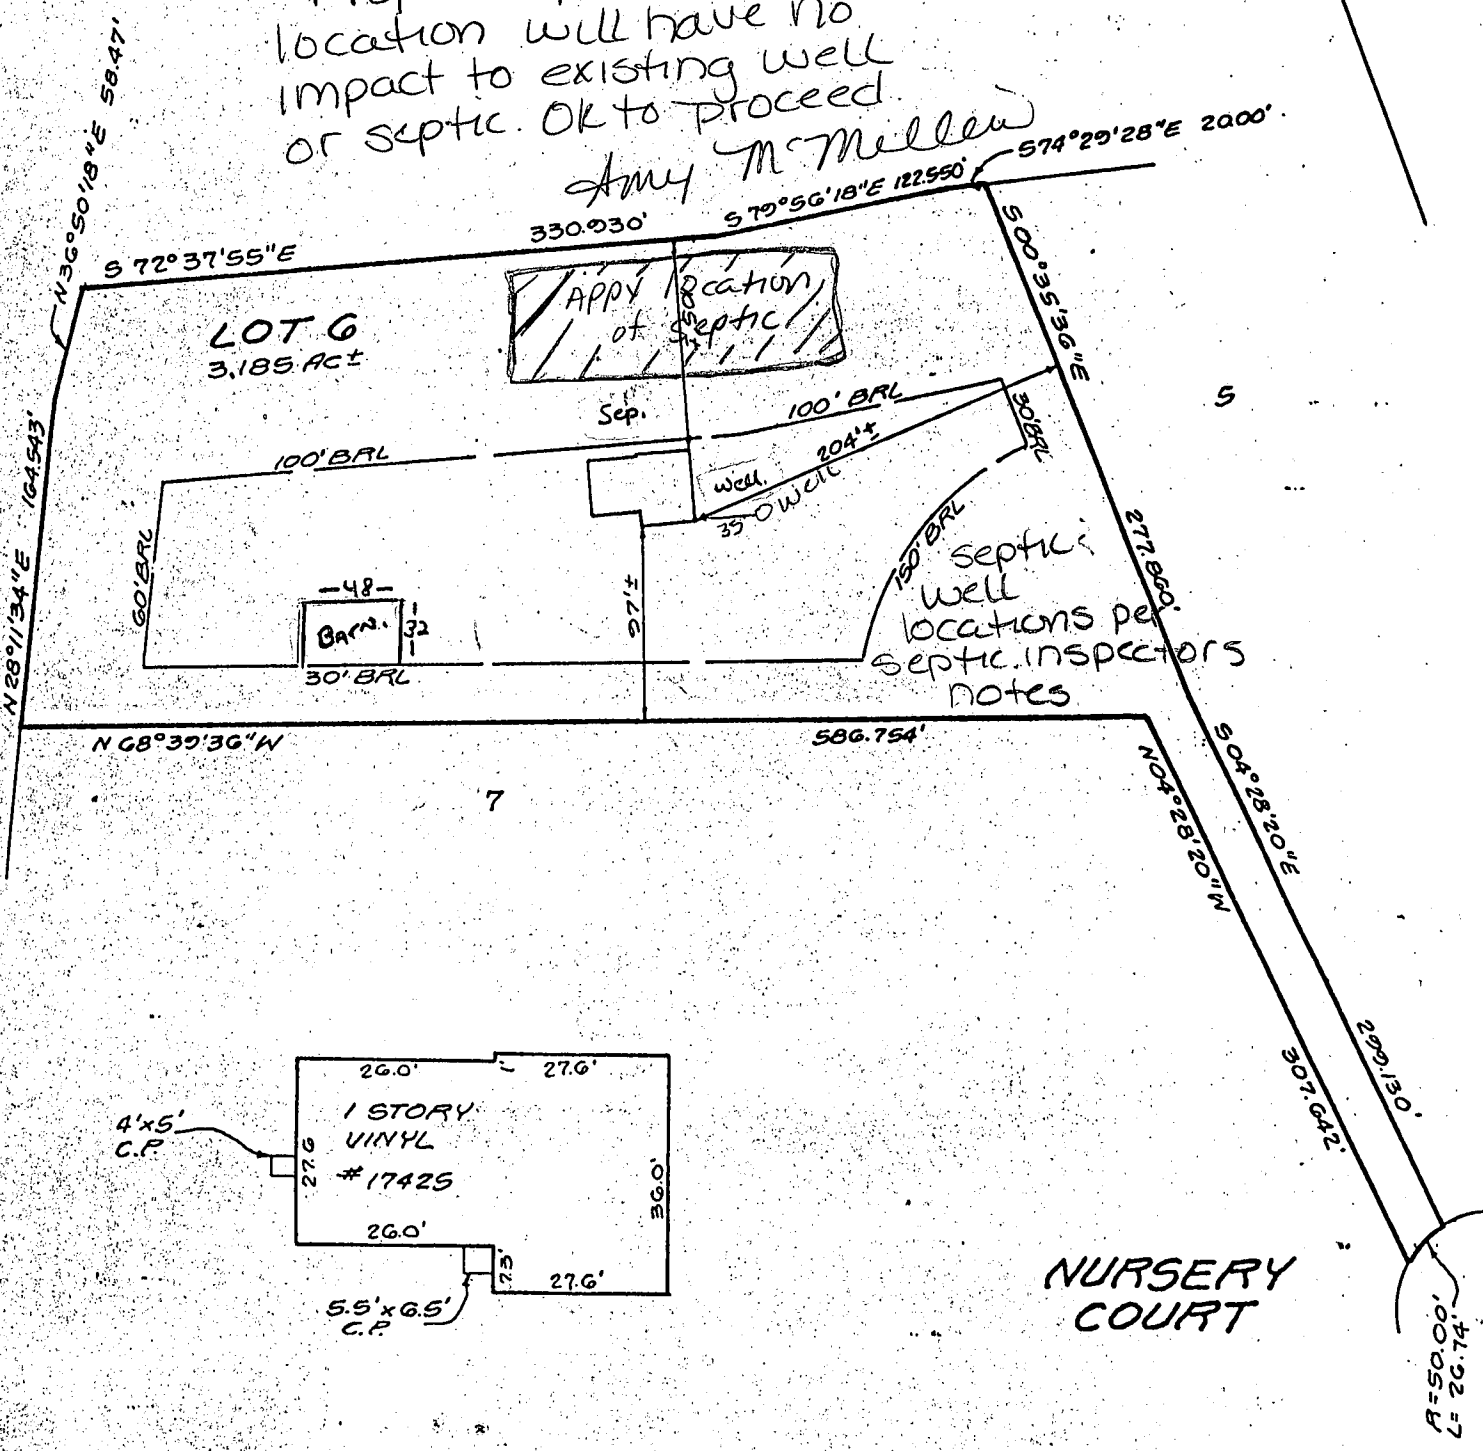 location will have no
impact to existing well
or septic. OK to proceed.
Amy McMillen
N36°50'18"E 58.47'
S 72°37'55"E
330.930'
S 79°56'18"E 122.550'
S74°29'28"E 20.00'
LOT 6
3.185 AC±
Appx location
of septic
Sep.
100' BRL
100' BRL
204'±
30' BRL
S 00°35'36"E
5
well.
35 O well
150' BRL
septic &
well
locations per
septic inspectors
notes
277.860'
N 28°11'34"E 164.543'
60' BRL
-48-
BARN.
32
30' BRL
97'±
N 68°39'36"W
586.754'
7
N04°28'20"W
307.642'
S 04°28'20"E
299.130'
26.0'
27.6'
1 STORY
VINYL
#17425
4'x5'
C.P.
27.6
36.0'
26.0'
7.3'
27.6'
5.5'x6.5'
C.P.
NURSERY
COURT
R=50.00'
L=26.74'